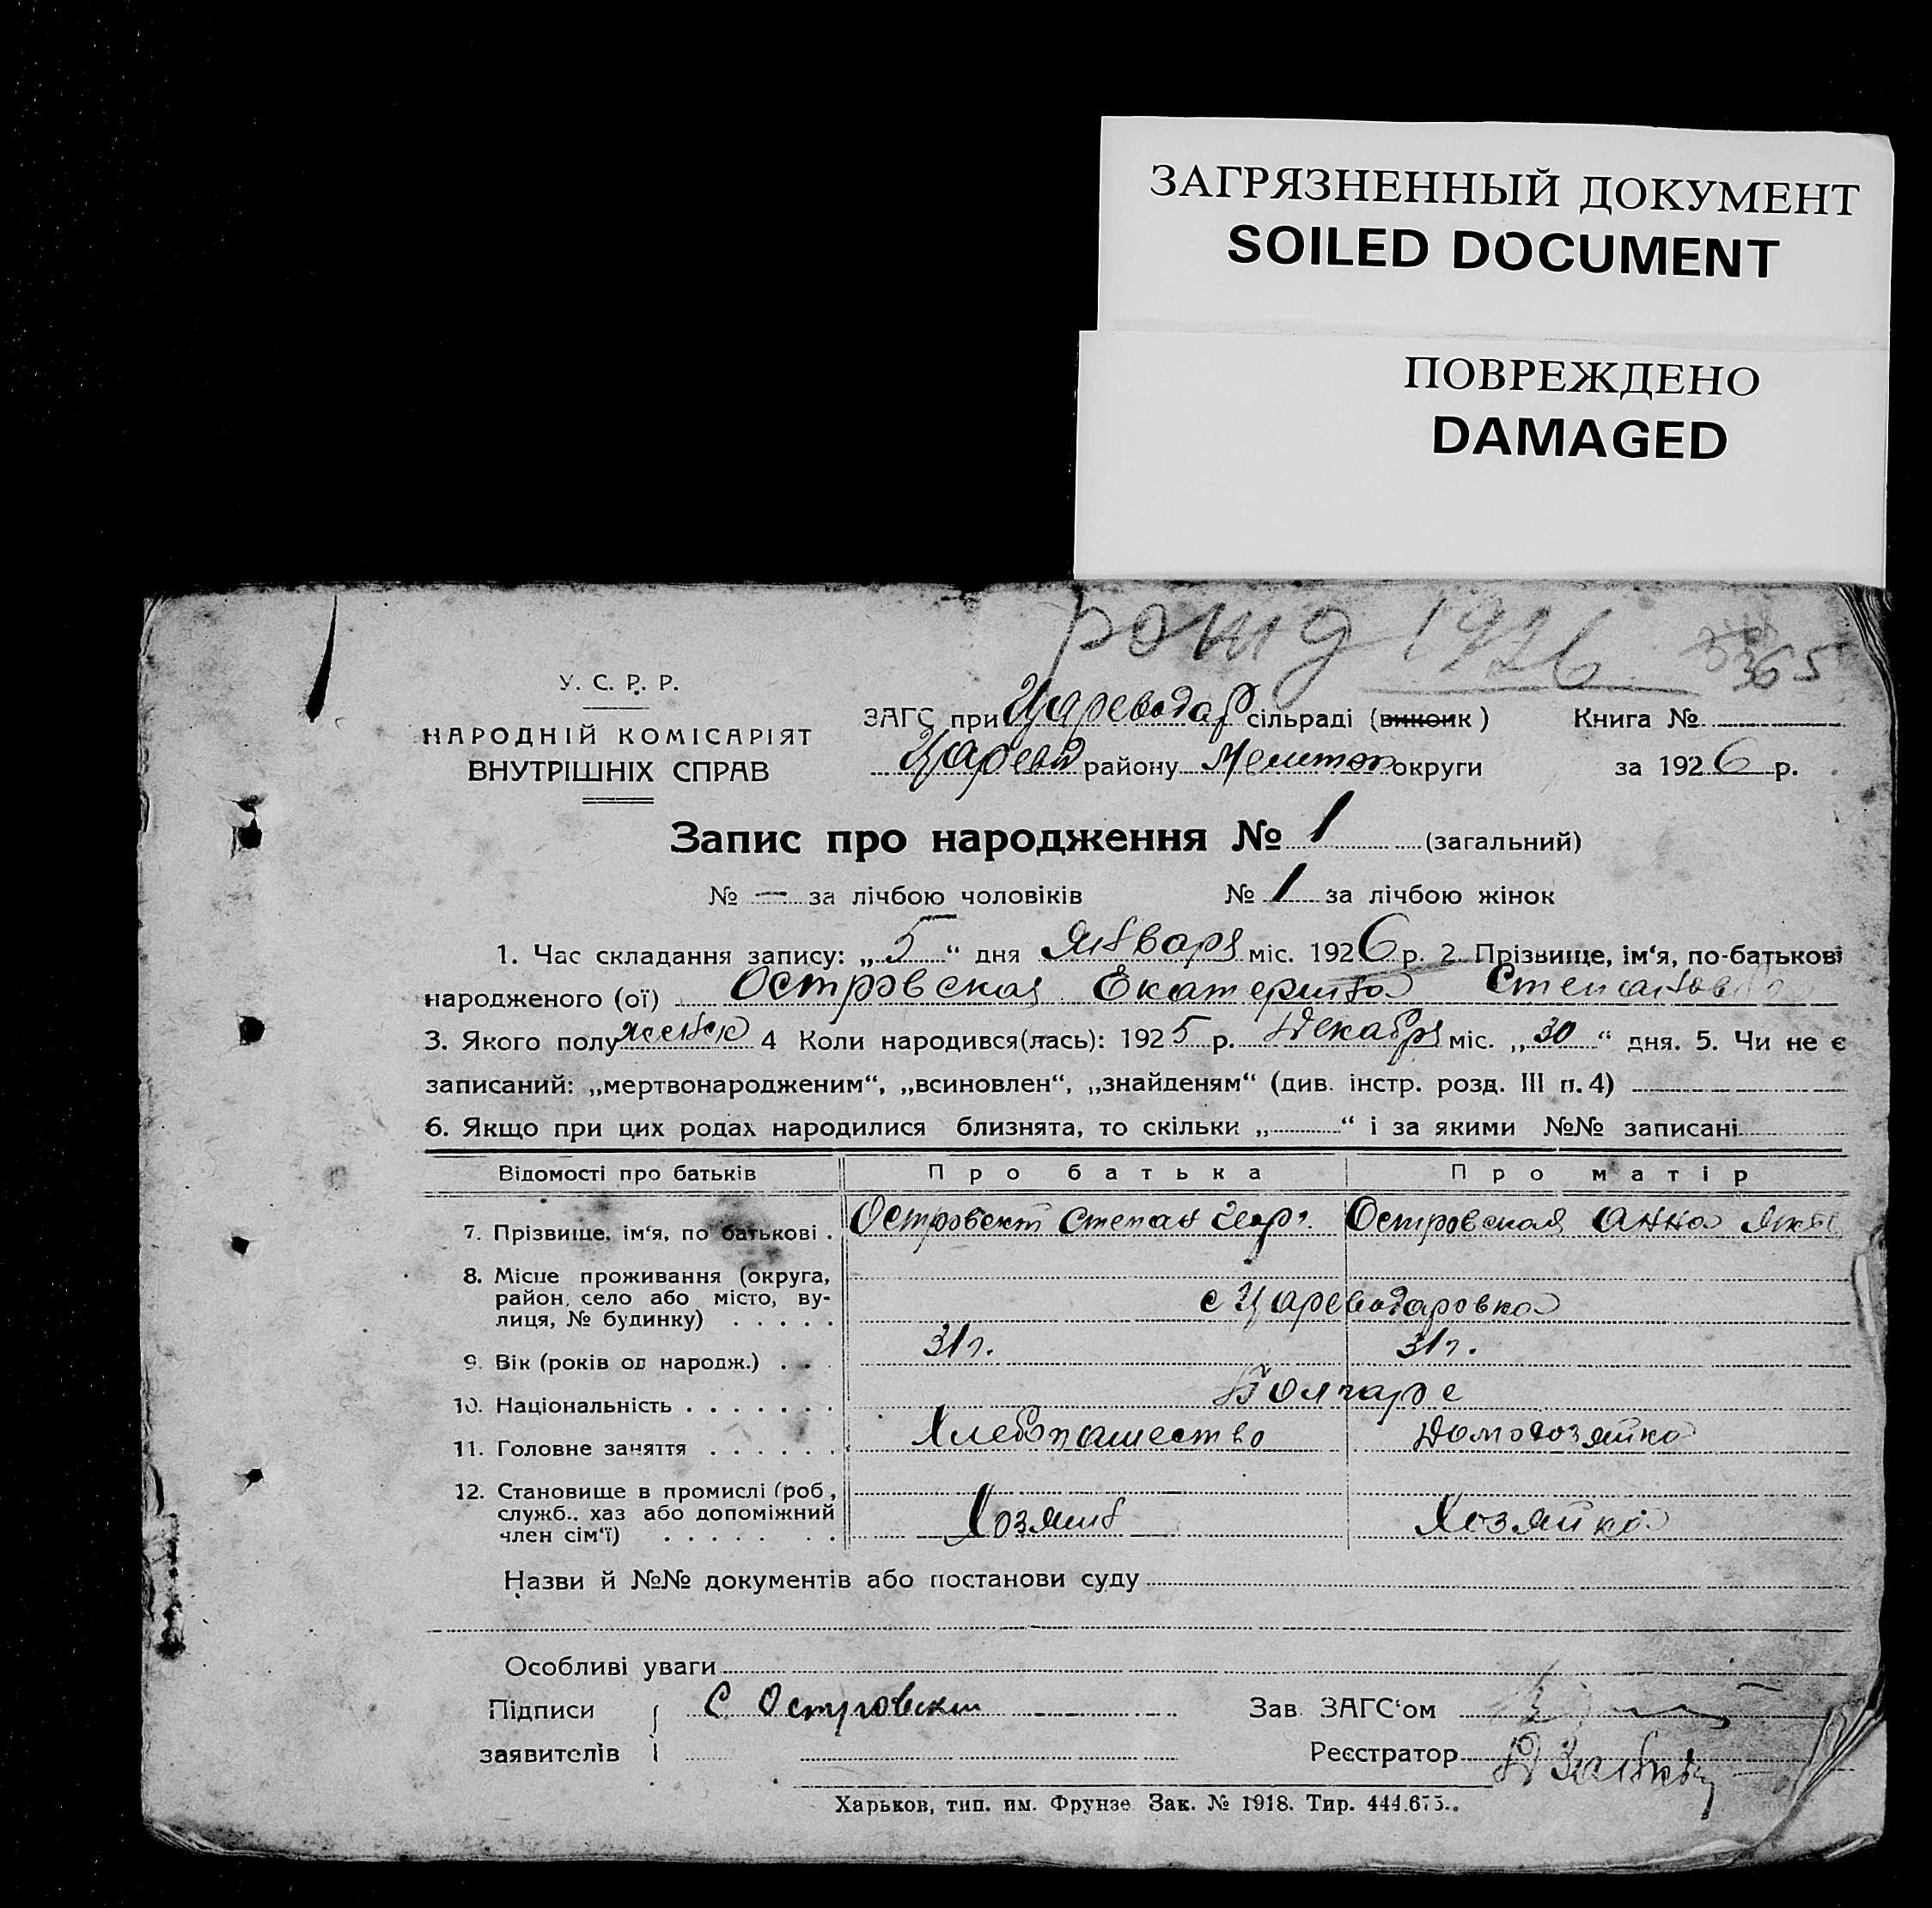 ЗАГРЯЗНЕННЫЙ ДОКУМЕНТ
SOILED DOCUMENT
ПОВРЕЖДЕНО
DAMAGED
рожд 1926
365
У. С. Р. Р.
НАРОДНІЙ КОМІСАРІЯТ
ВНУТРІШНІХ СПРАВ
ЗАГС при Цареводар сільраді (виконк) Книга №
району Мелитоп округи за 1926 р.
Запис про народження № 1 (загальний)
№ — за лічбою чоловіків № 1 за лічбою жінок
1. Час складання запису: „5“ дня Января міс. 1926 р. 2. Прізвище, ім‘я, по-батькові
народженого (ої) Островская Екатерина Степановна
3. Якого полу женск 4 Коли народився(лась): 1925 р. Декабря міс. „30“ дня. 5. Чи не є
записаний: „мертвонародженим“, „всиновлен“, „знайденям“ (див. інстр. розд. III п. 4)
6. Якщо при цих родах народилися близнята, то скільки „ “ і за якими №№ записані
Відомості про батьків Про батька Про матір
7. Прізвище, ім‘я, по батькові . Островский Степан Геор. Островская Анна Яковл
8. Місце проживання (округа,
район, село або місто, ву-
лиця, № будинку) . . . . . с Цареводаровка
9. Вік (років од народж.) . . . 31 г. 31 г.
10. Національність . . . . . . . Болгаре
11. Головне заняття . . . . . . Хлебопашество Домохозяйка
12. Становище в промислі (роб.,
служб.. хаз або допоміжний
член сім‘ї) . . . . . . . Хозяин Хозяйка
Назви й №№ документів або постанови суду
Особливі уваги
Підписи С Островский Зав ЗАГС‘ом
заявителів Реєстратор
Харьков, тип. им. Фрунзе Зак. № 1918. Тир. 444.675..